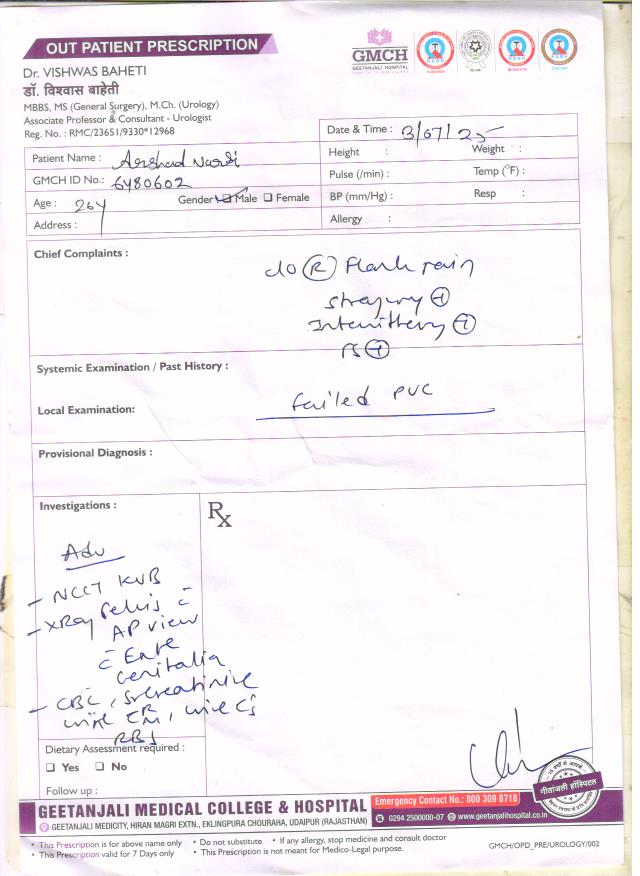 OUT PATIENT PRESCRIPTION
GMCH
GEETANJALI HOSPITAL
Dr. VISHWAS BAHETI
डॉ. विश्वास बाहेती
MBBS, MS (General Surgery), M.Ch. (Urology)
Associate Professor & Consultant - Urologist
Reg. No. : RMC/23651/9330*12968
Date & Time : 3/07/25
Patient Name : Arshad
Height : Weight :
GMCH ID No.: 6480602
Pulse (/min) : Temp (°F) :
Age : 26y Gender Male Female
BP (mm/Hg) : Resp :
Address :
Allergy :
Chief Complaints :
c/o R Flank pain
+
Intermittency +
+
Systemic Examination / Past History :
Local Examination: failed PUC
Provisional Diagnosis :
Investigations :
Rx
Adv
- NCCT KUB
- XRay Pelvis c
AP view
c Entire
Genitalia
- CBC, S. creatinine
urine RM, urine CS
RBS
Dietary Assessment required :
Yes No
Follow up :
गीतांजली हॉस्पिटल
GEETANJALI MEDICAL COLLEGE & HOSPITAL
Emergency Contact No.: 800 309 8718
GEETANJALI MEDICITY, HIRAN MAGRI EXTN., EKLINGPURA CHOURAHA, UDAIPUR (RAJASTHAN)
0294 2500000-07 www.geetanjalihospital.co.in
• This Prescription is for above name only • Do not substitute • If any allergy, stop medicine and consult doctor
• This Prescription valid for 7 Days only • This Prescription is not meant for Medico-Legal purpose.
GMCH/OPD_PRE/UROLOGY/002